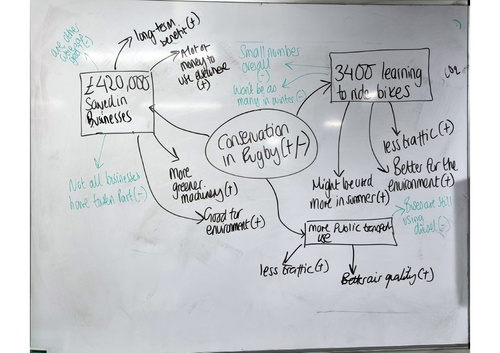 long term
benefit(+)
£420,000
Saved in
Businesses
A lot of
money to
use elsewhere
(+)
Not all businesses
have taken Part(-)
More
greener
machinery(+)
Good for
environment(+)
Conservation
in Rugby(+/-)
Small number
overall
(-)
Wont be as
many in winter(-)
3400 learning
to ride bikes
CO2
less traffic(+)
Better for the
environment(+)
Might be used
more in summer(+)
Buses are still
using
diesel(-)
more Public transport
use
less traffic(+)
Better air quality(+)